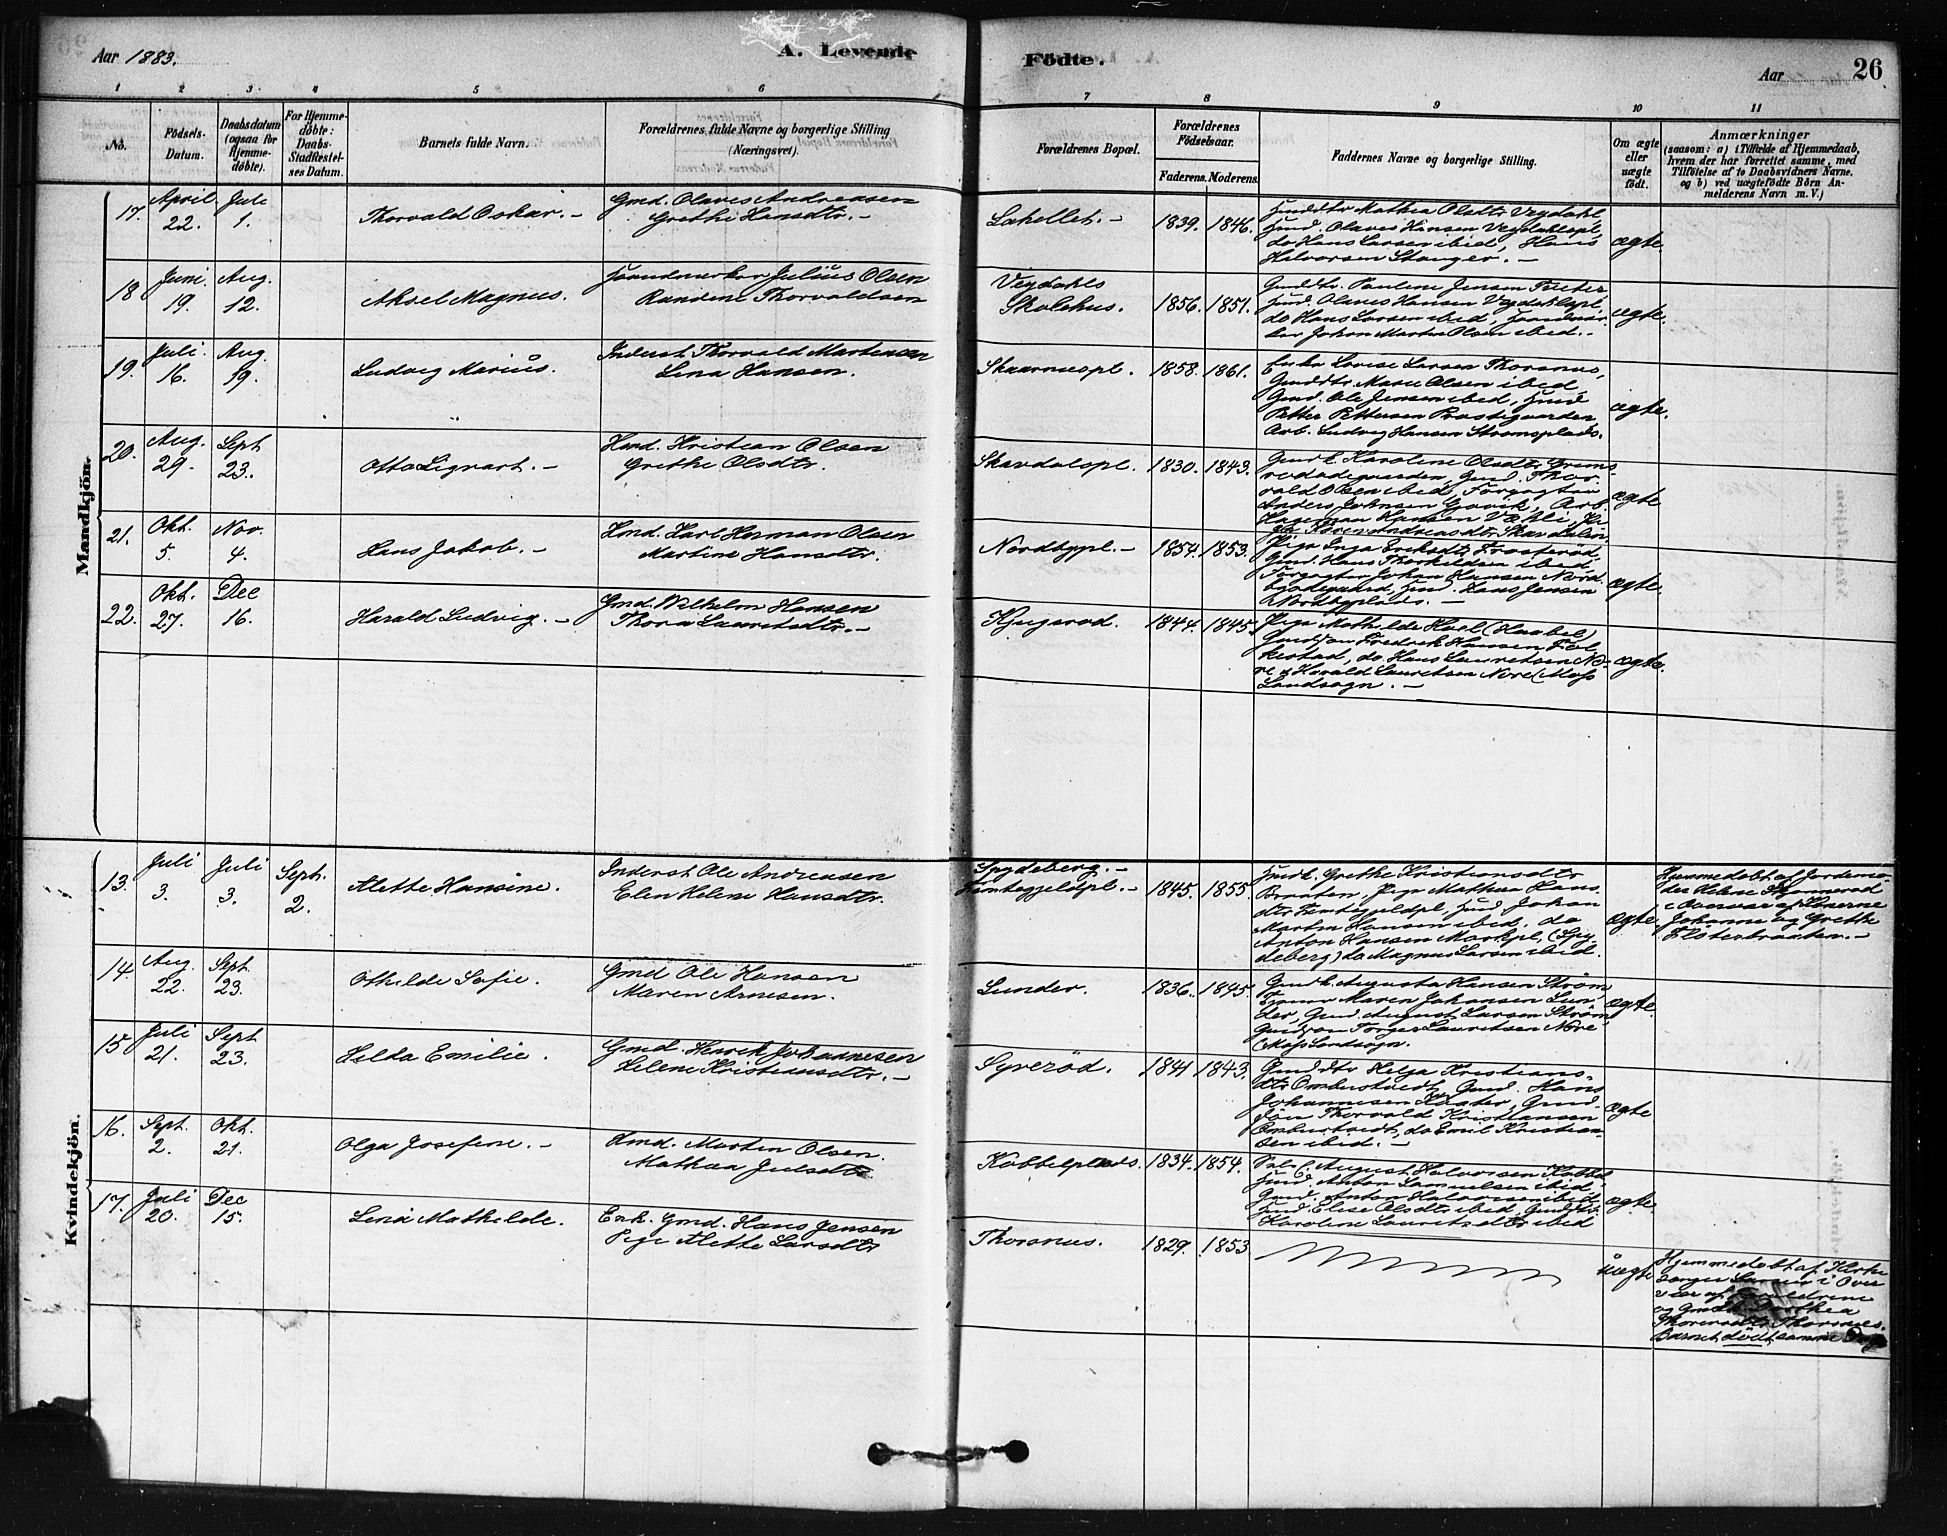 Aar 1883.
A. Levende
Födte.
Aar
26
1 2 3 4 5 6 7 8 9 10 11
No.
Födsels-
Datum.
Daabsdatum
(ogsaa for
Hjemme-
döbte).
For Hjemme-
döbte:
Daabs-
Stadfæstel-
ses Datum.
Barnets fulde Navn.
Forældrenes fulde Navne og borgerlige Stilling
(Næringsvei).
Forældrenes Bopæl.
Forældrenes
Födselsaar.
Faderens. Moderens.
Faddernes Navne og borgerlige Stilling.
Om ægte
eller
uægte
födt.
Anmærkninger
(saasom: a) i Tilfælde af Hjemmedaab,
hvem der har forrettet samme, med
Tilföielse af to Daabsvidners Navne.
og b) ved uægtefödte Börn An-
melderens Navn m. V.)
Mandkjön.
17. April 22. Juli 1.
Thorvald Oskar. -
Gmd. Olaves Andreasen
Grethe Hansdtr. -
1839. 1846.
Gmddtr Mathea Olsdtr Vegdahl,
Hmd. Olaves Hansen Vegdahlspl,
do Hans Larsen ibid, Hans
Halvorsen Stanger. -
ægte.
18 Juni 19. Aug. 12.
Aksel Magnus.
Haandverker Julius Olsen
Randine Thorvaldsen
Vegdahls
Skolehus.
1856. 1851.
Gmddtr. Pauline Jensen
Hmd. Olaves Hansen Vegdahlspl,
do Hans Larsen ibid, Haandvær-
ker Johan Martin Olsen ibid. -
ægte.
19. Juli 16. Aug. 19.
Ludvig Marius.
Inderst Thorvald Martinsen
Lina Hansen.
1858. 1861.
Enke Lovise Larsen Thorsnes,
Gmddtr Marie Olsen ibid,
Gmd. Ole Jensen ibid, Hmd
Petter Pettersen Præstegaarden
Arb. Ludvig Hansen Strømsplads.
ægte.
20. Aug. 29. Sept 23.
Otto Sigvart. -
Hmd. Kristian Olsen
Grethe Olsdtr.
Skavdalspl.
1830. 1843.
Gmdk. Karoline Olsdtr
Gmd. Thor-
vald Olsen ibid, Forpagter
Anders Johnsen Arb.
ægte
21. Okt. 5. Nov. 4.
Hans Jakob. -
Hmd. Karl Herman Olsen
Martine Hansdtr.
Nordbypl. -
1857. 1853.
Pige Inga Eriksdtr
Gmd. Hans Thorkildsen ibid
Forpagter Johan Hansen Nord-
bødegaard, Hmd. Hans Jensen
Nordbyplads. -
ægte.
22. Okt. 27. Dec 16.
Harald Ludvig. -
Gmd. Vilhelm Hansen
Thora Lauritsdtr. -
1844. 1845.
Pige Mathilde Hael (Haabel)
Gmdsøn Fredrik Hansen Fol-
kestad, do Hans Lauretsen No-
re & Harald Lauretsen Nore (Moss
Landsogn. -
ægte.
Kvindekjön.
13. Juli 3. Juli 3. Sept. 2.
Alette Hansine.
Inderst Ole Andreasen
Elen Helene Hansdtr.
Spydeberg. -
1845. 1855.
Hmdk. Grethe Kristiansdtr
Braaten, Pige Mathea Hans
dtr Hmd Johan
Martin Hansen ibid, do
Anton Hansen (Spy-
deberg) do Magnus Larsen ibid.
ægte.
Hjemmedøbt af Jordemo-
der Helene
i Overvær af Konerne
Johanne og Grethe
14. Aug. 22. Sept. 23.
Othilde Sofie.
Gmd Ole Hansen
Maren Arnesen.
Lunder.
1836. 1845.
Gmdk. Augusta Hansen Strøm
Maren Johansen Lun-
der, Gmd. August Larsen Strøm
Gmdsøn Torger Lauretsen Nore
(Moss Landsogn.
ægte.
15 Juli 21. Sept 23.
Hilda Emilie.
Gmd. Henrik Johannesen
Helene Kristiansdtr. -
Syverød.
1841 1843.
Gmddtr Helga Kristians-
dtr Gmd. Hans
Johannesen Gmd-
søn Thorvald Kristiansen
do Emil Kristian-
sen ibid. -
ægte
16. Sept. 2. Okt. 21.
Olga Josefine. -
Hmd. Morten Olsen.
Mathea Julsdtr
Kobbelplads.
1834. 1854.
August Halvorsen
Hmd. Anton Samuelsen ibid,
Gmd. Anton Halvorsen ibid
Elise Olsdtr ibid, Gmddtr
Karoline Lauritsdtr ibid
ægte.
17. Juli 20. Dec 15.
Lina Mathilde.
Enk. Gmd. Hans Jensen
Pige Alette Larsdtr
Thorsnes.
1829. 1853
uægte
Hjemmedøbt af Kirke
sanger Larsen i Over
vær af Forældrene
og Gmdk. Dorthea
Thorsnes.
Barnet døde samme Dag